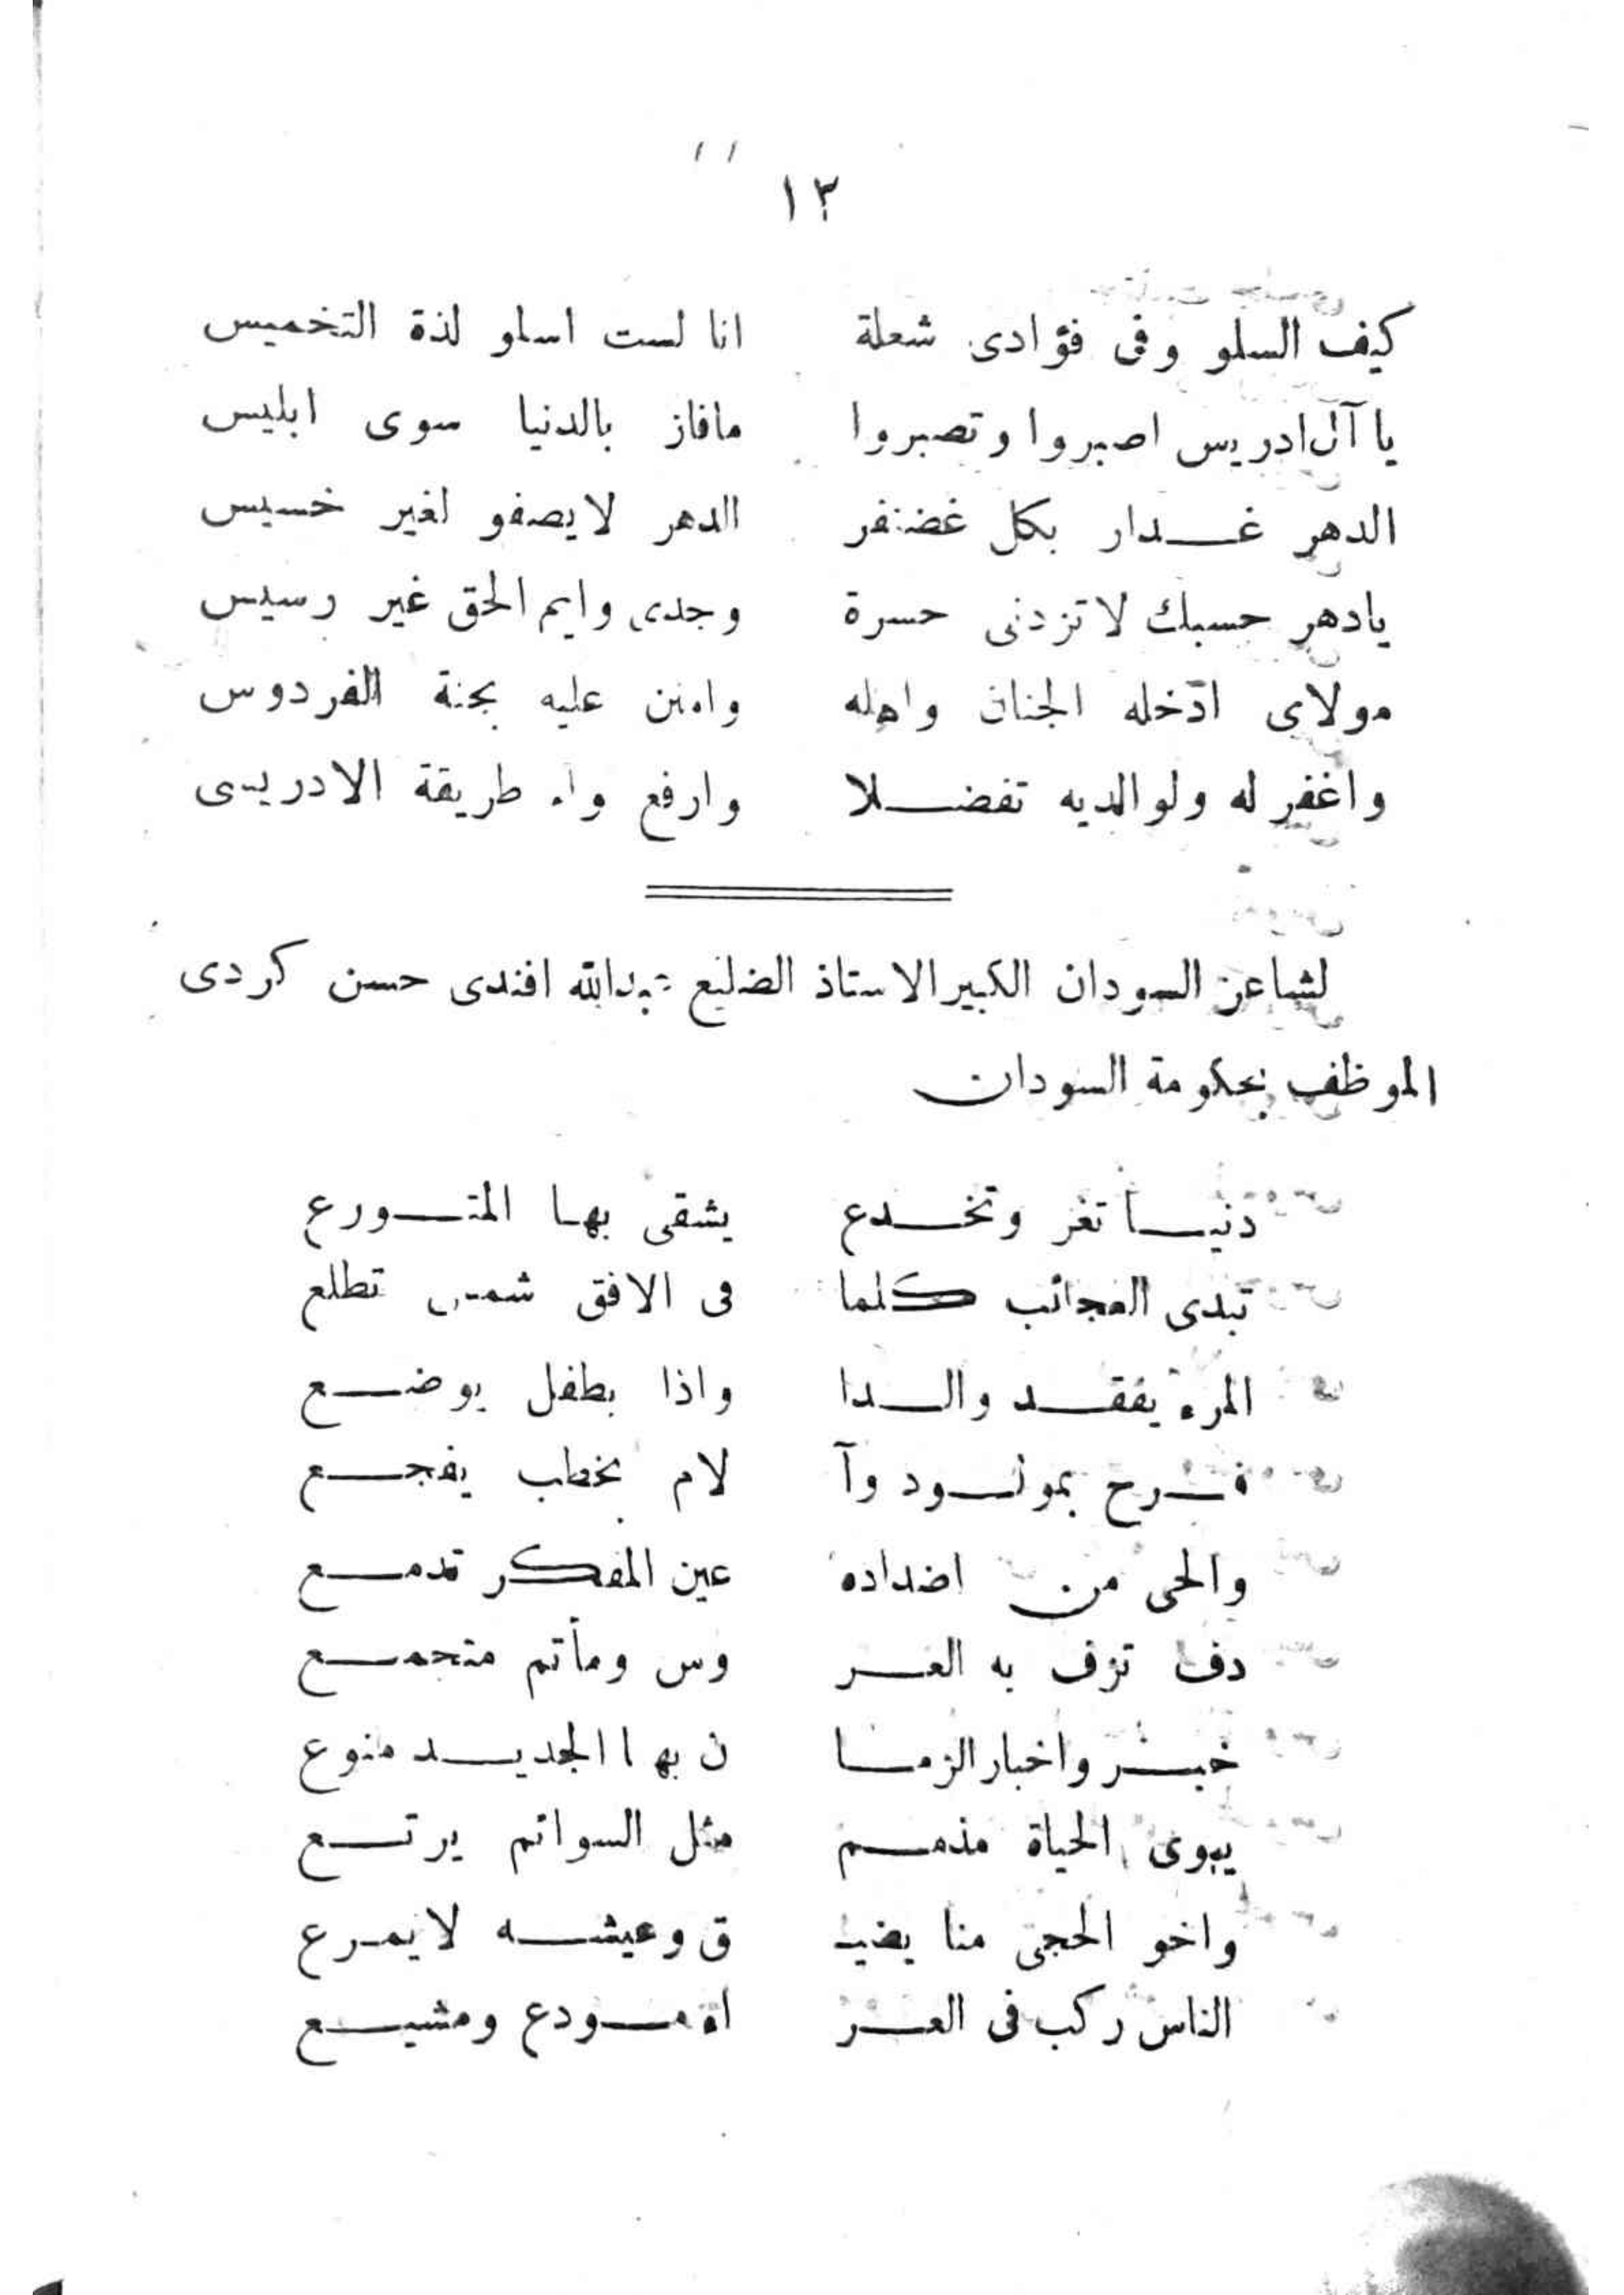 ١٣
كيف السلو وفى فؤادى شعلة انا لست اسلو لذة التخميس
يا آل ادريس اصبروا وتصبروا مافاز بالدنيا سوى ابليس
الدهر غدار بكل غضنفر الدهر لا يصفو لغير خسيس
يادهر حسبك لا تزدنى حسرة وجدى وايم الحق غير رسيس
مولاى ادخله الجنان واهله وامنن عليه بجنة الفردوس
واغفر له ولوالديه تفضلا وارفع طريقة الادريسى
لشاعر السودان الكبير الاستاذ الضليع عبدالله افندى حسن كردى
الموظف بحكومة السودان
دنيا تغر وتخدع يشقى بها المتورع
تبدى العجائب كلما فى الافق شمس تطلع
المرء يفقد والدا واذا بطفل يوضع
فرح بمولود وآ لام بخطب يفجع
والحى من اضداده عين المفكر تدمع
دف تزف به العر وس ومأتم متجمع
خبر واخبار الزما ن بها الجديد منوع
يهوى الحياة مذمم مثل السوائم يرتع
واخو الحجى منا يضيـ ق وعيشه لا يمرع
الناس ركب فى العر اة مودع ومشيع